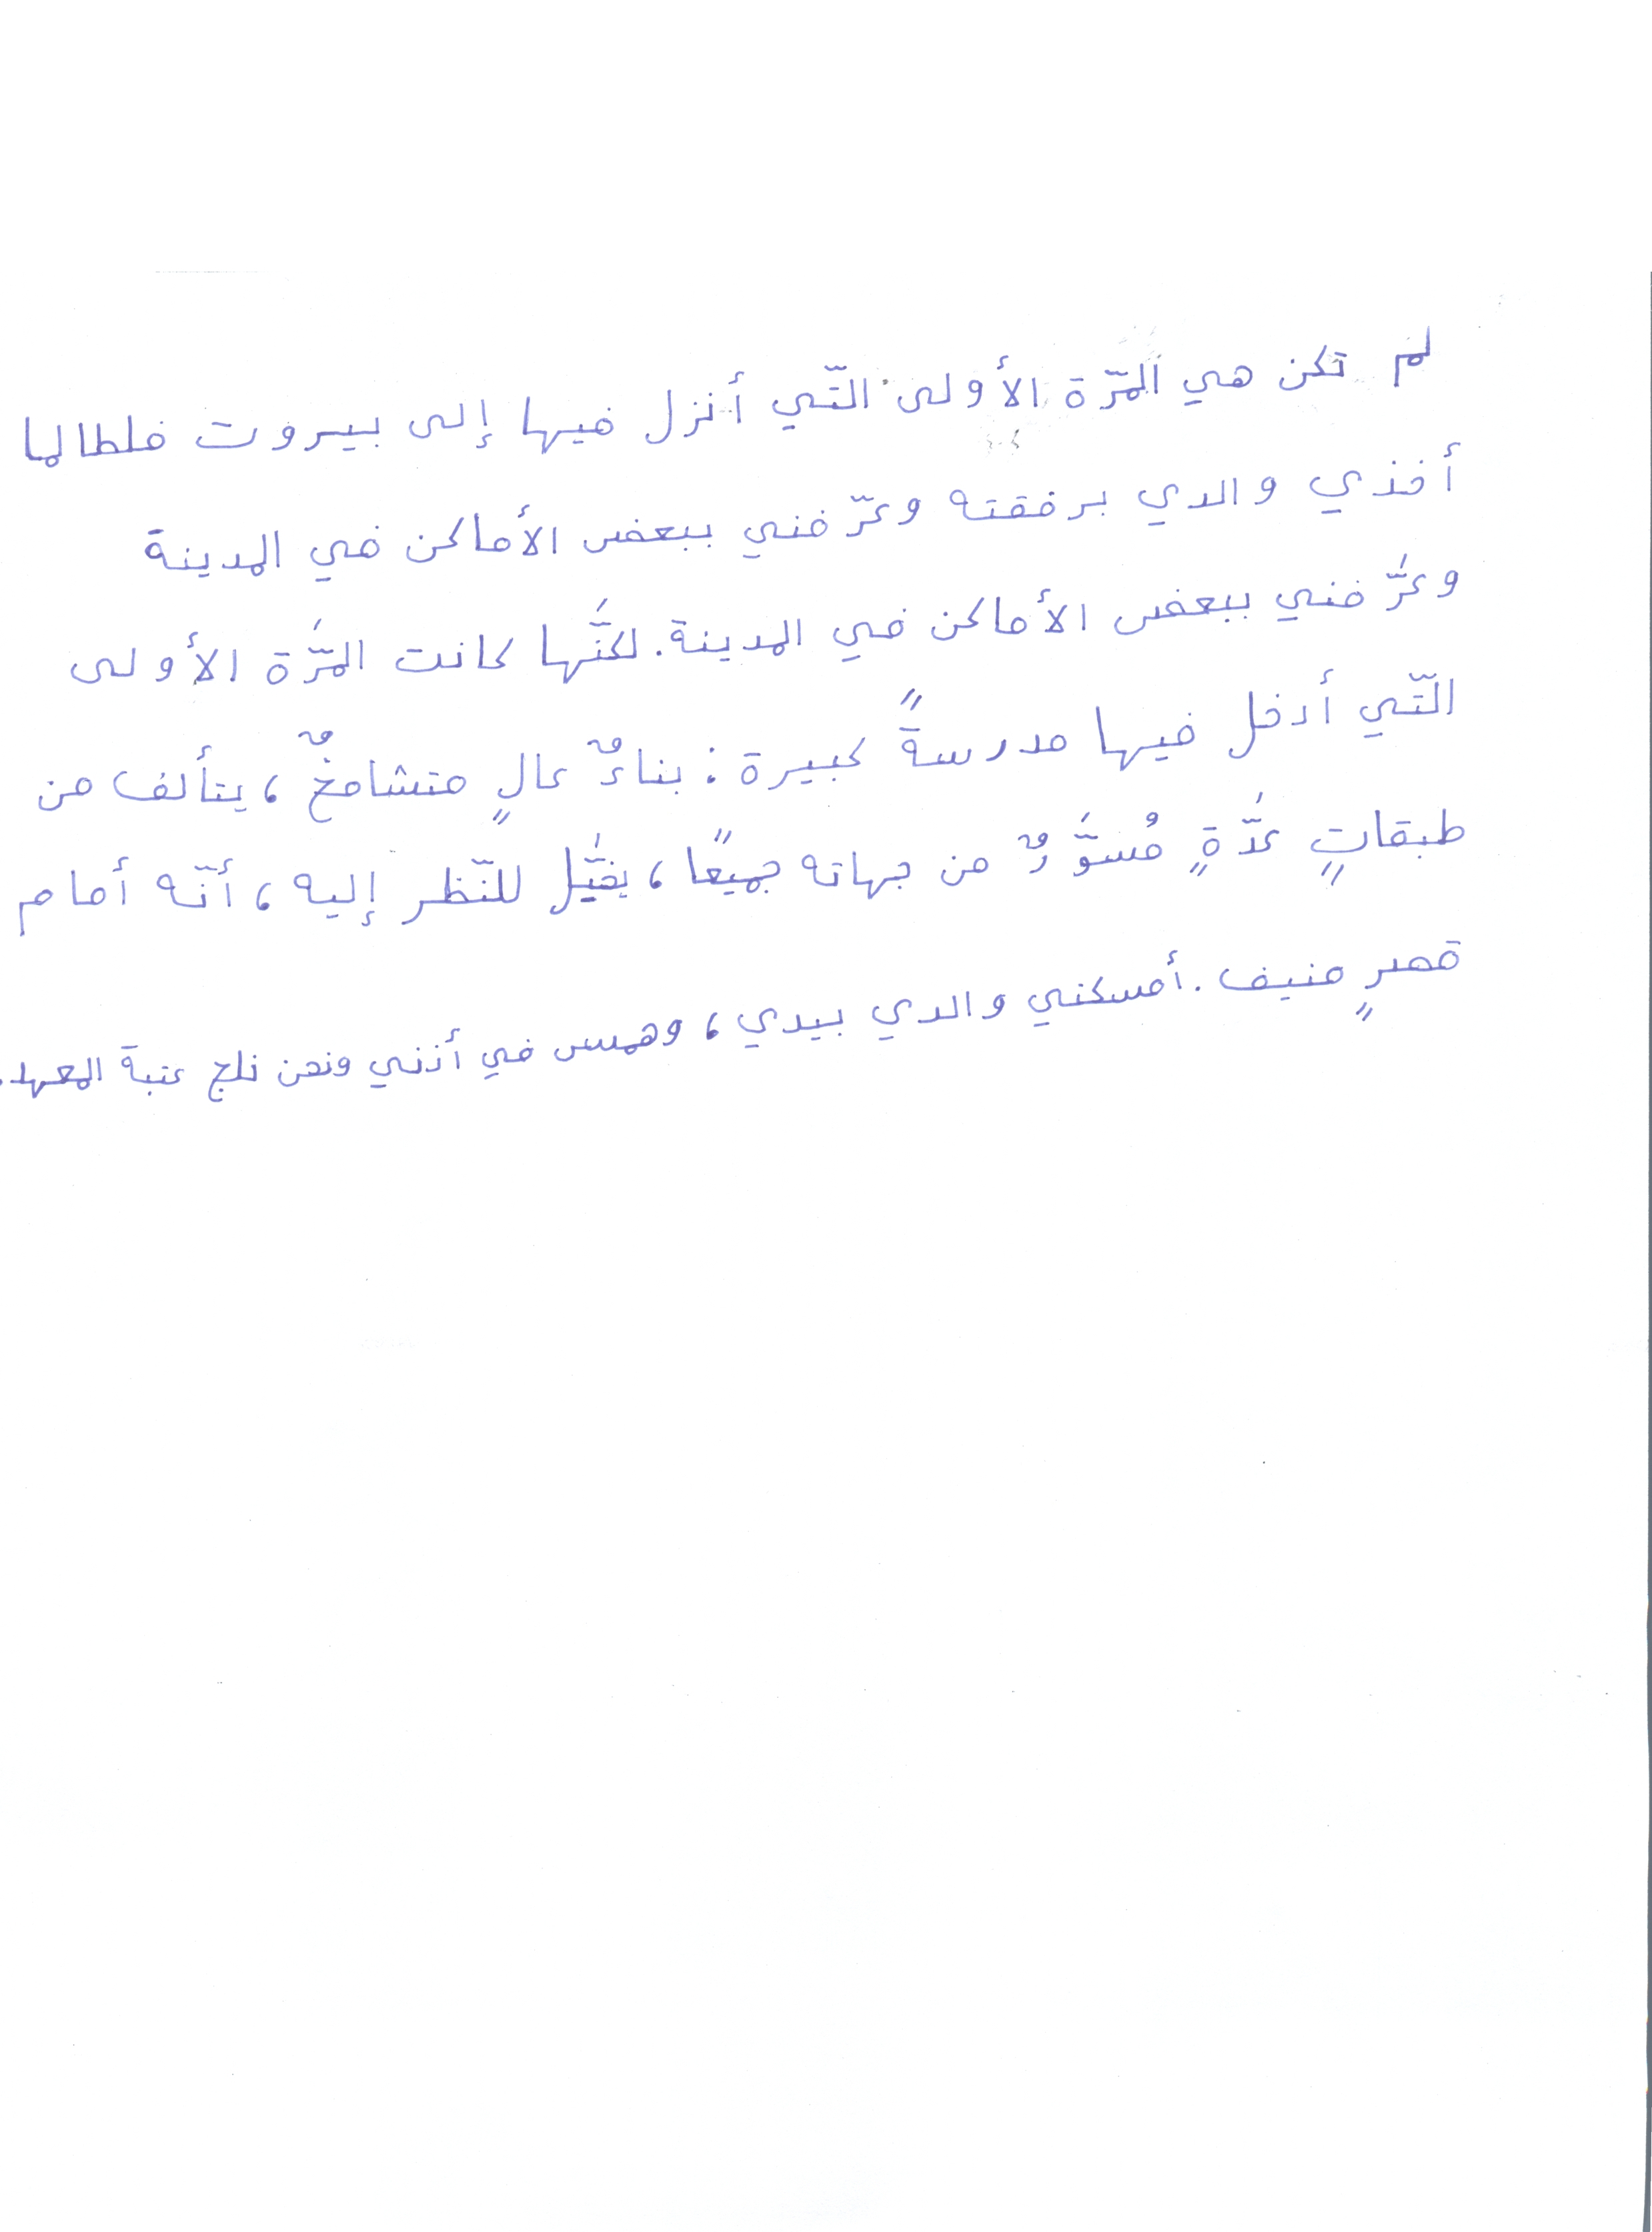 لم تكن هي المرّة الأولى التّي أنزل فيها إلى بيروت فلطالما
أخذي والدي برفقته وعرّفني ببعض الأماكن في المدينة
وعرَّفني ببعض الأماكن في المدينة. لكنَّها كانت المرَّة الأولى
التّي أدخل فيها مدرسةً كبيرة: بناءٌ عالٍ متشامخٌ، يتألف من
طبقاتٍ عدَّةٍ مُسوَّرٌ من جهاته جميعًا، يخيَّل للنّظر إليه، أنّه أمام
قصرٍ منيف. أمسكني والدي بيدي، وهمس في أذني ونحن نلج عتبة المعهد.